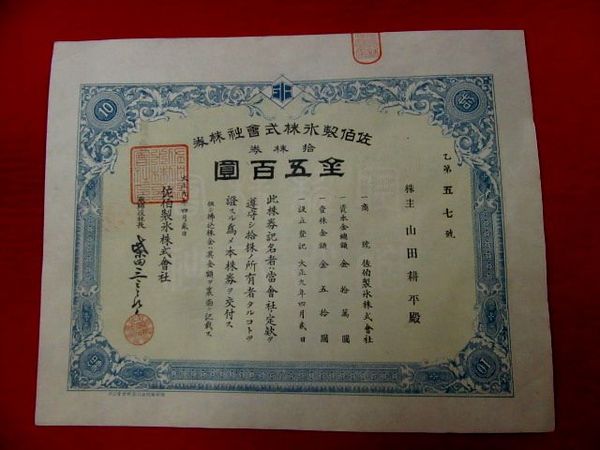 佐伯製氷株式會社株券
拾株券
金五百圓
乙第五七號
株主 山田耕平殿
一商號 佐伯製氷株式會社
一資本金總額 金拾萬圓
一壹株金額 金五拾圓
一設立登記 大正九年四月貳日
此株券記名者ハ當會社ノ定款ヲ
遵守シ拾株ノ所有者タルコトヲ
證スル爲メ本株券ヲ交付ス
但シ拂込株金ハ其金額ヲ裏面ニ記載ス
大正九年四月貳日
佐伯製氷株式會社
取締役社長
10
拾
10